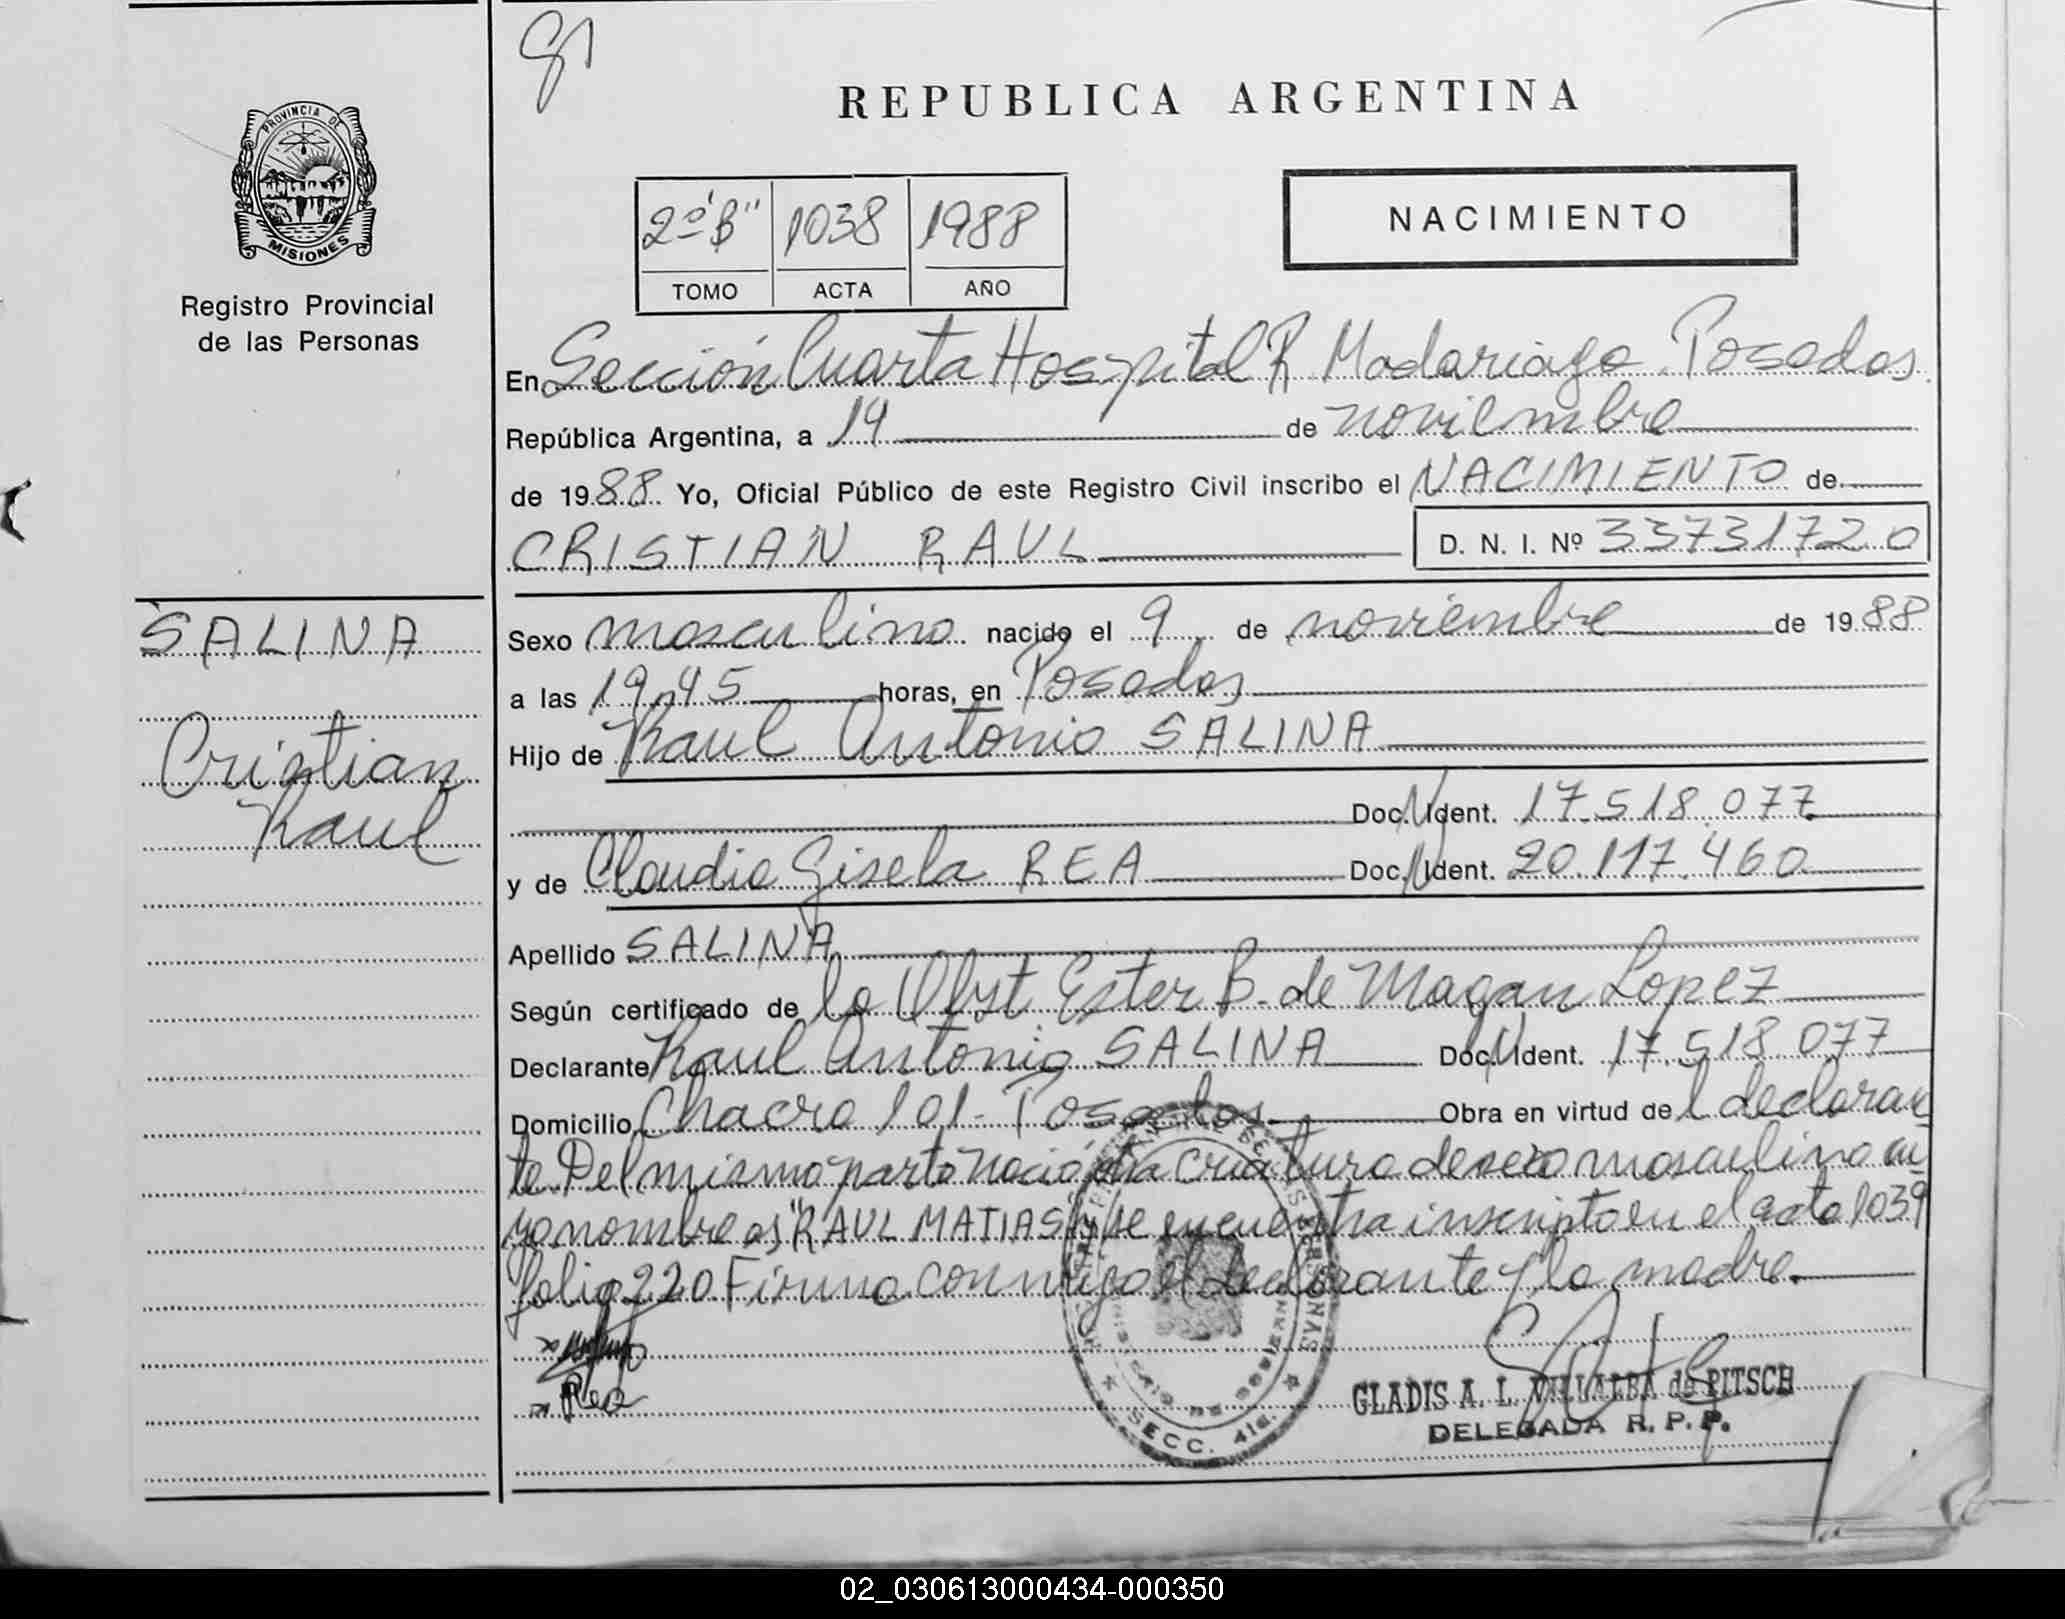 PROVINCIA DE
MISIONES
Registro Provincial
de las Personas
SALINA
Cristian
Raul
REPUBLICA ARGENTINA
2º "B" 1038 1988
TOMO ACTA AÑO
NACIMIENTO
En Sección Cuarta Hospital R Madariaga. Posadas
República Argentina, a 14 de noviembre
de 1988 Yo, Oficial Público de este Registro Civil inscribo el NACIMIENTO de
CRISTIAN RAUL D. N. I. Nº 33731720
Sexo masculino nacido el 9 de noviembre de 1988
a las 19,45 horas, en Posadas
Hijo de Raul Antonio SALINA
Doc. Ident. 17.518.077
y de Claudia Gisela REA Doc. Ident. 20.117.460
Apellido SALINA
Según certificado de la Obst Ester B. de Magan Lopez
Declarante Raul Antonio SALINA Doc. Ident. 17.518.077
Domicilio Chacra 101- Posadas Obra en virtud de l declaran
te. Del mismo parto nació otra criatura de sexo masculino cu
yo nombre es "RAUL MATIAS" y se encuentra inscripto en el acta 1039
folio 220 Firma conmigo el declarante y la madre.
Rea
GLADIS A. L. VILLALBA de PITSCH
DELEGADA R. P. P.
SECC. 4ta.
02_030613000434-000350